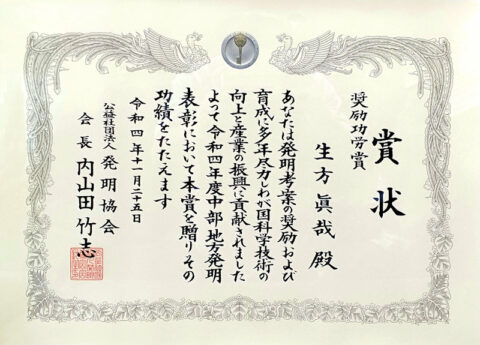 賞状
奨励功労賞
生方眞哉殿
あなたは発明考案の奨励および
育成に多年尽力しわが国科学技術の
向上と産業の振興に貢献されました
よって令和四年度中部地方発明
表彰において本賞を贈りその
功績をたたえます
令和四年十一月二十五日
公益社団法人発明協会
会長 内山田竹志